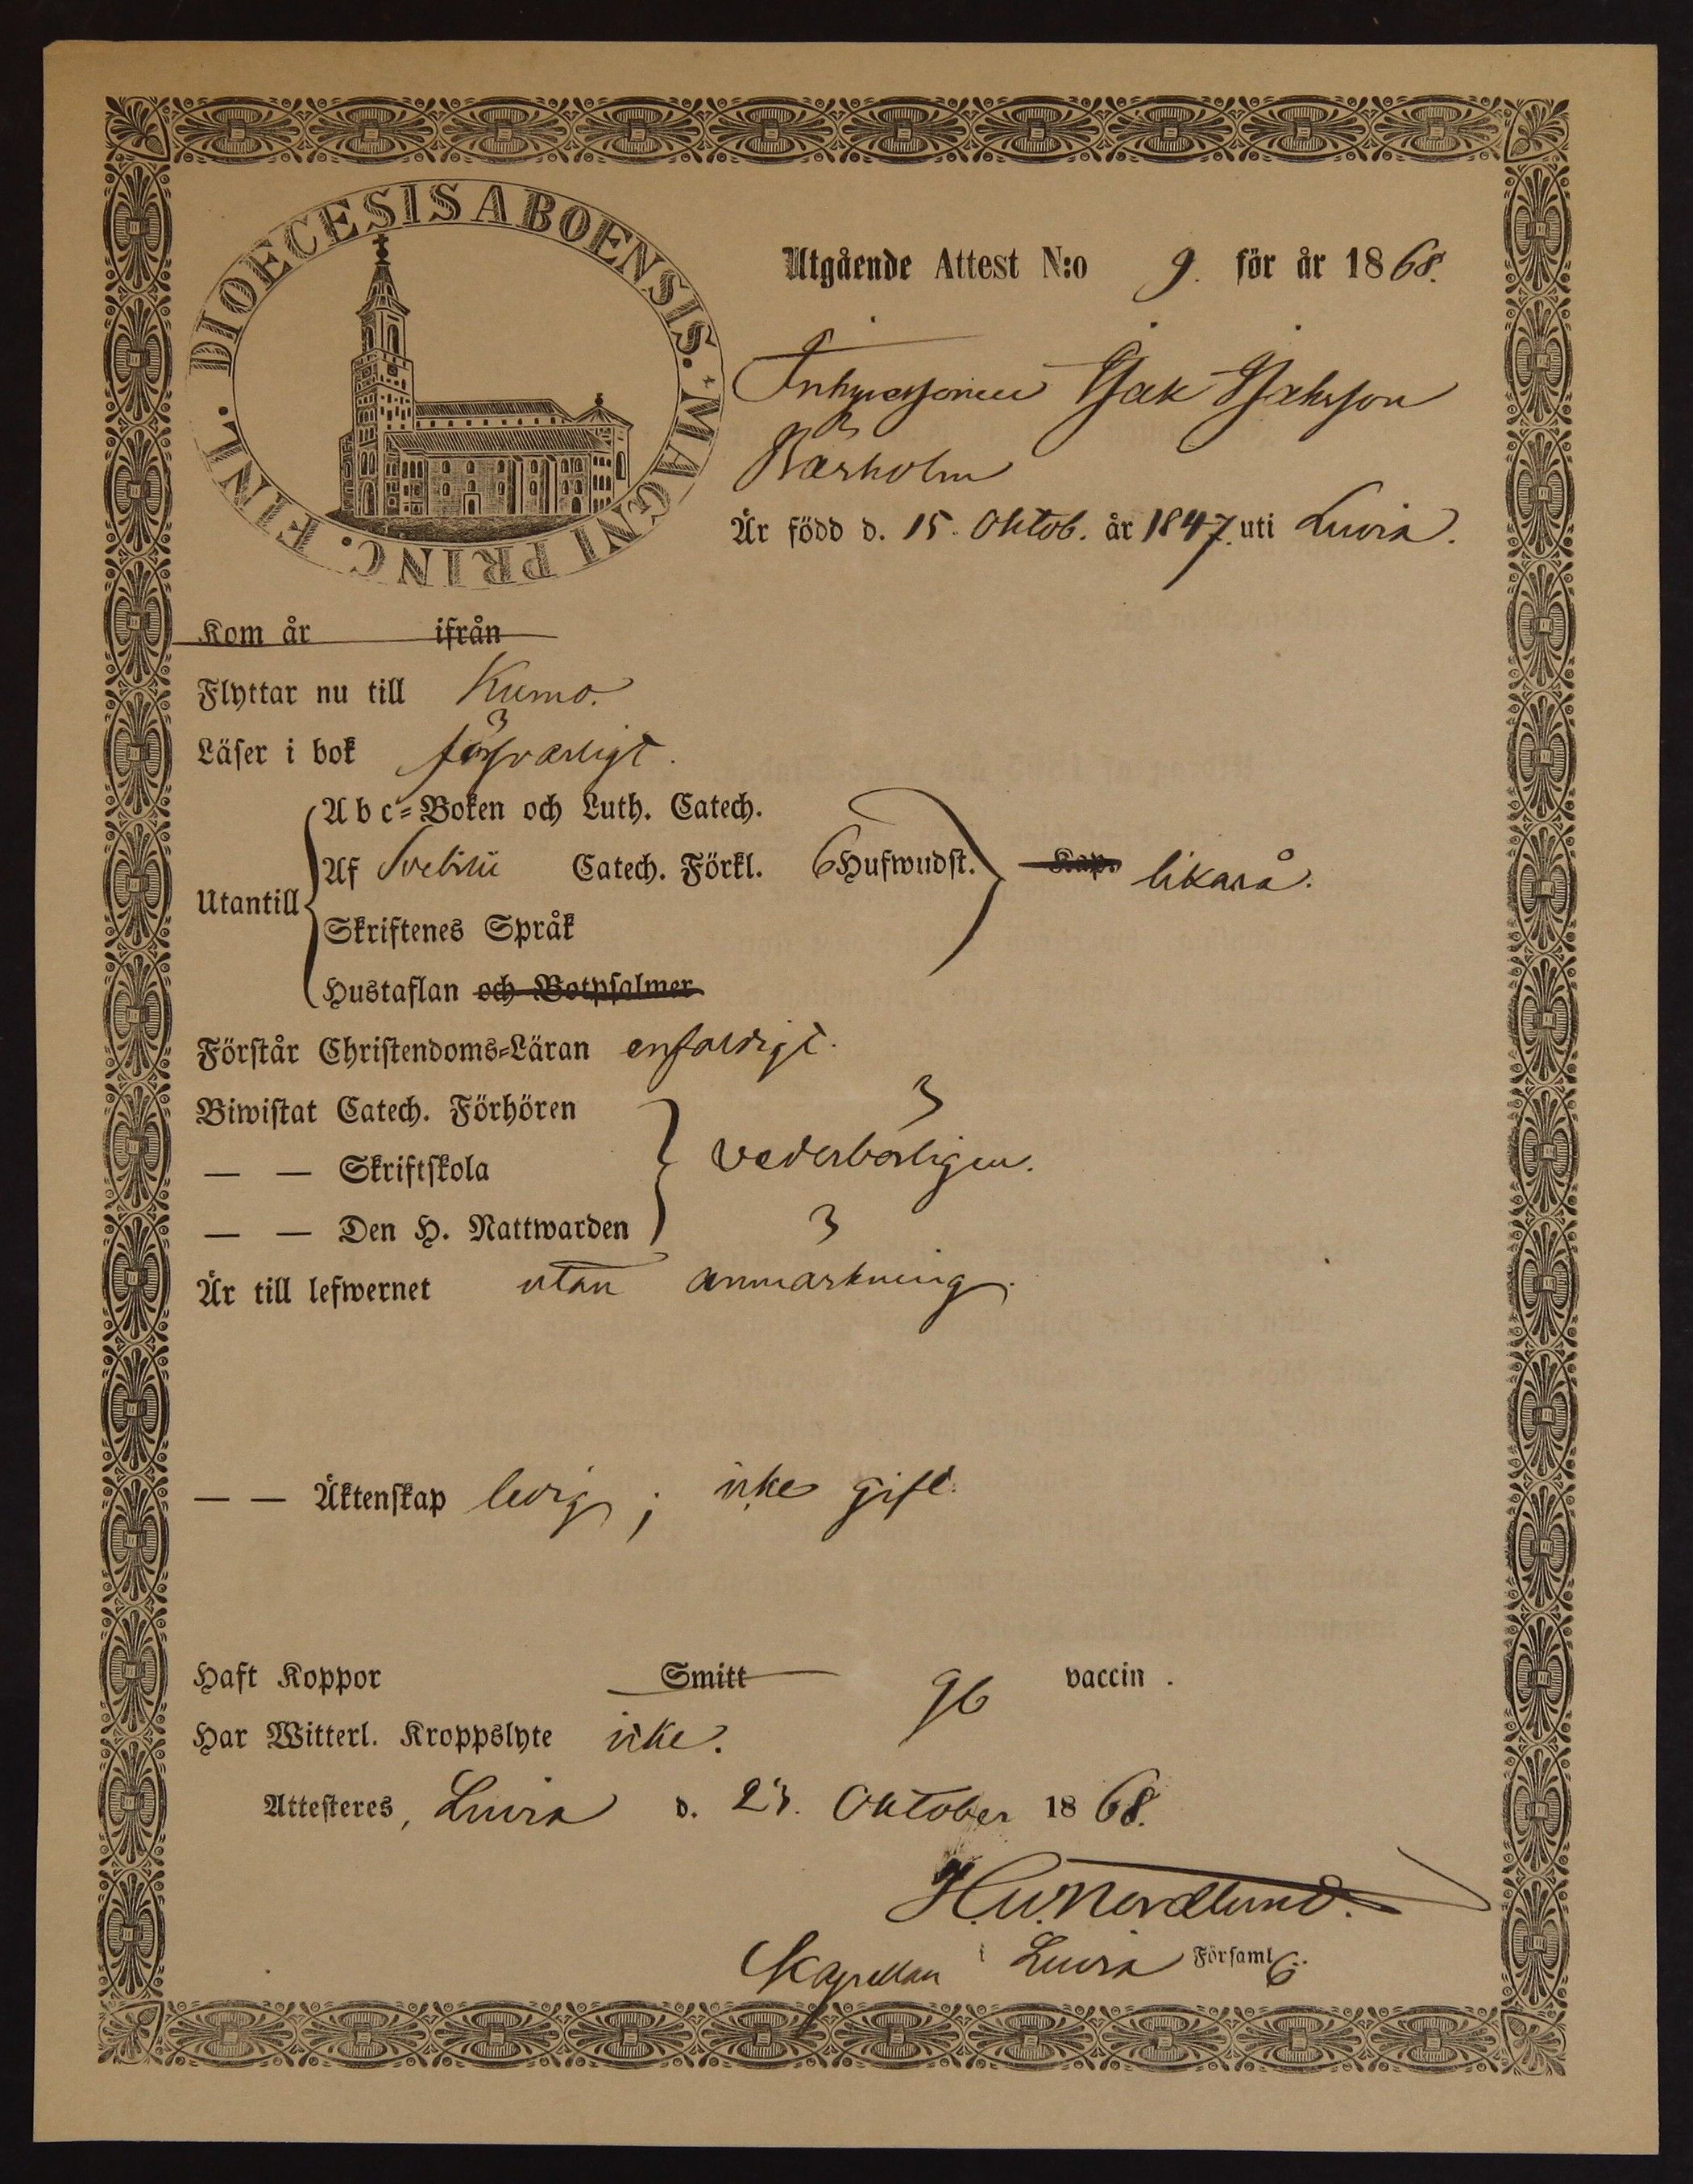 DIOECESIS ABOENSIS. MAGNI PRINC. FINL.
Utgående Attest N:o 9. för år 1868.
Inhysessonen Isak Isaksson
Är född d. 15. Oktob. år 1847. uti Luvia.
Kom år ifrån
Flyttar nu till Kumo.
Läser i bok försvarligt.
Abc-Boken och Luth. Catech.
Utantill Af Svebilii Catech. Förkl. 6 Hufwudst. Kap. likaså.
Skriftenes Språk
Hustaflan och Botpsalmer
Förstår Christendoms-Läran enfaldigt.
Biwistat Catech. Förhören
— — Skriftskola vederbörligen.
— — Den H. Nattwarden
Är till lefwernet utan anmärkning.
— — Äktenskap ledig; icke gift.
Haft Koppor Smitt gb vaccin.
Har Witterl. Kroppslyte icke.
Attesteres, Luvia d. 23. Oktober 1868.
H.W. Nordlund.
Kapellan i Luvia Församlg.